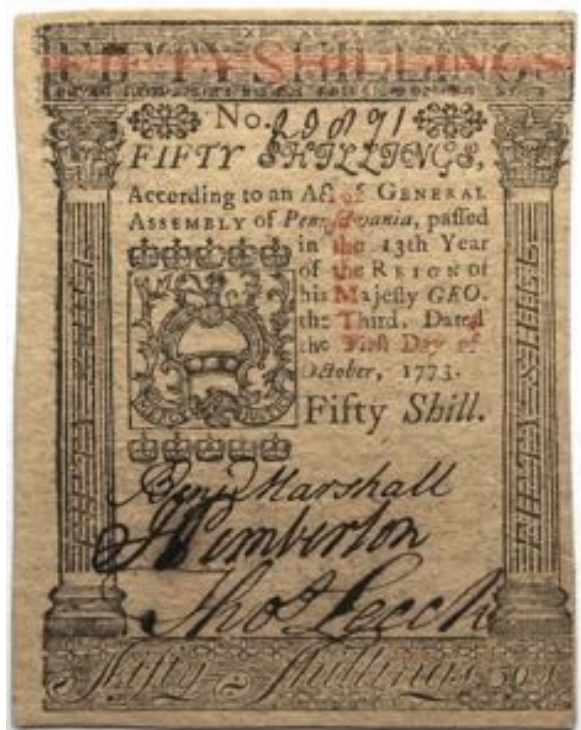 FIFTY SHILLINGS
No. 29891
FIFTY SHILLINGS,
According to an Act of GENERAL
ASSEMBLY of Pennsylvania, paſſed
in the 13th Year
of the REIGN of
his Majeſty GEO.
the Third. Dated
the Firſt Day of
October, 1773.
Fifty Shill.
Benj Marshall
J Pemberton
Thos Leech
Fifty Shillings